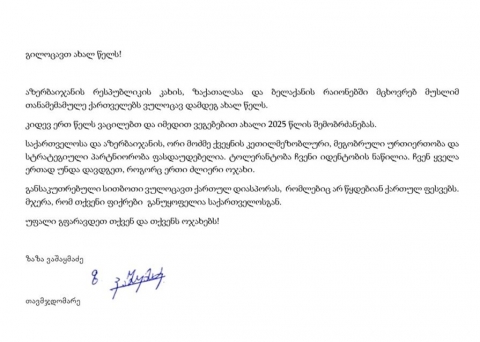 გილოცავთ ახალ წელს!
აზერბაიჯანის რესპუბლიკის კახის, ზაქათალასა და ბელაქანის რაიონებში მცხოვრებ მუსლიმ
თანამემამულე ქართველებს ვულოცავ დამდეგ ახალ წელს.
კიდევ ერთ წელს ვაცილებთ და იმედით ვეგებებით ახალი 2025 წლის შემობრძანებას.
საქართველოსა და აზერბაიჯანის, ორი მოძმე ქვეყნის კეთილმეზობლური, მეგობრული ურთიერთობა და
სტრატეგიული პარტნიორობა ფასდაუდებელია. ტოლერანტობა ჩვენი იდენტობის ნაწილია. ჩვენ ყველა
ერთად უნდა დავდგეთ, როგორც ერთი ძლიერი ოჯახი.
განსაკუთრებული სითბოთი ვულოცავთ ქართულ დიასპორას, რომლებიც არ წყდებიან ქართულ ფესვებს.
მჯერა, რომ თქვენი ფიქრები განუყოფელია საქართველოსგან.
უფალი გფარავდეთ თქვენ და თქვენს ოჯახებს!
ზაზა ვაშაყმაძე
თავმჯდომარე